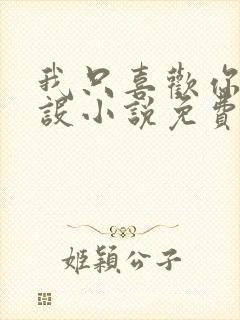 我只喜歡你
設小說免費
姬穎公子